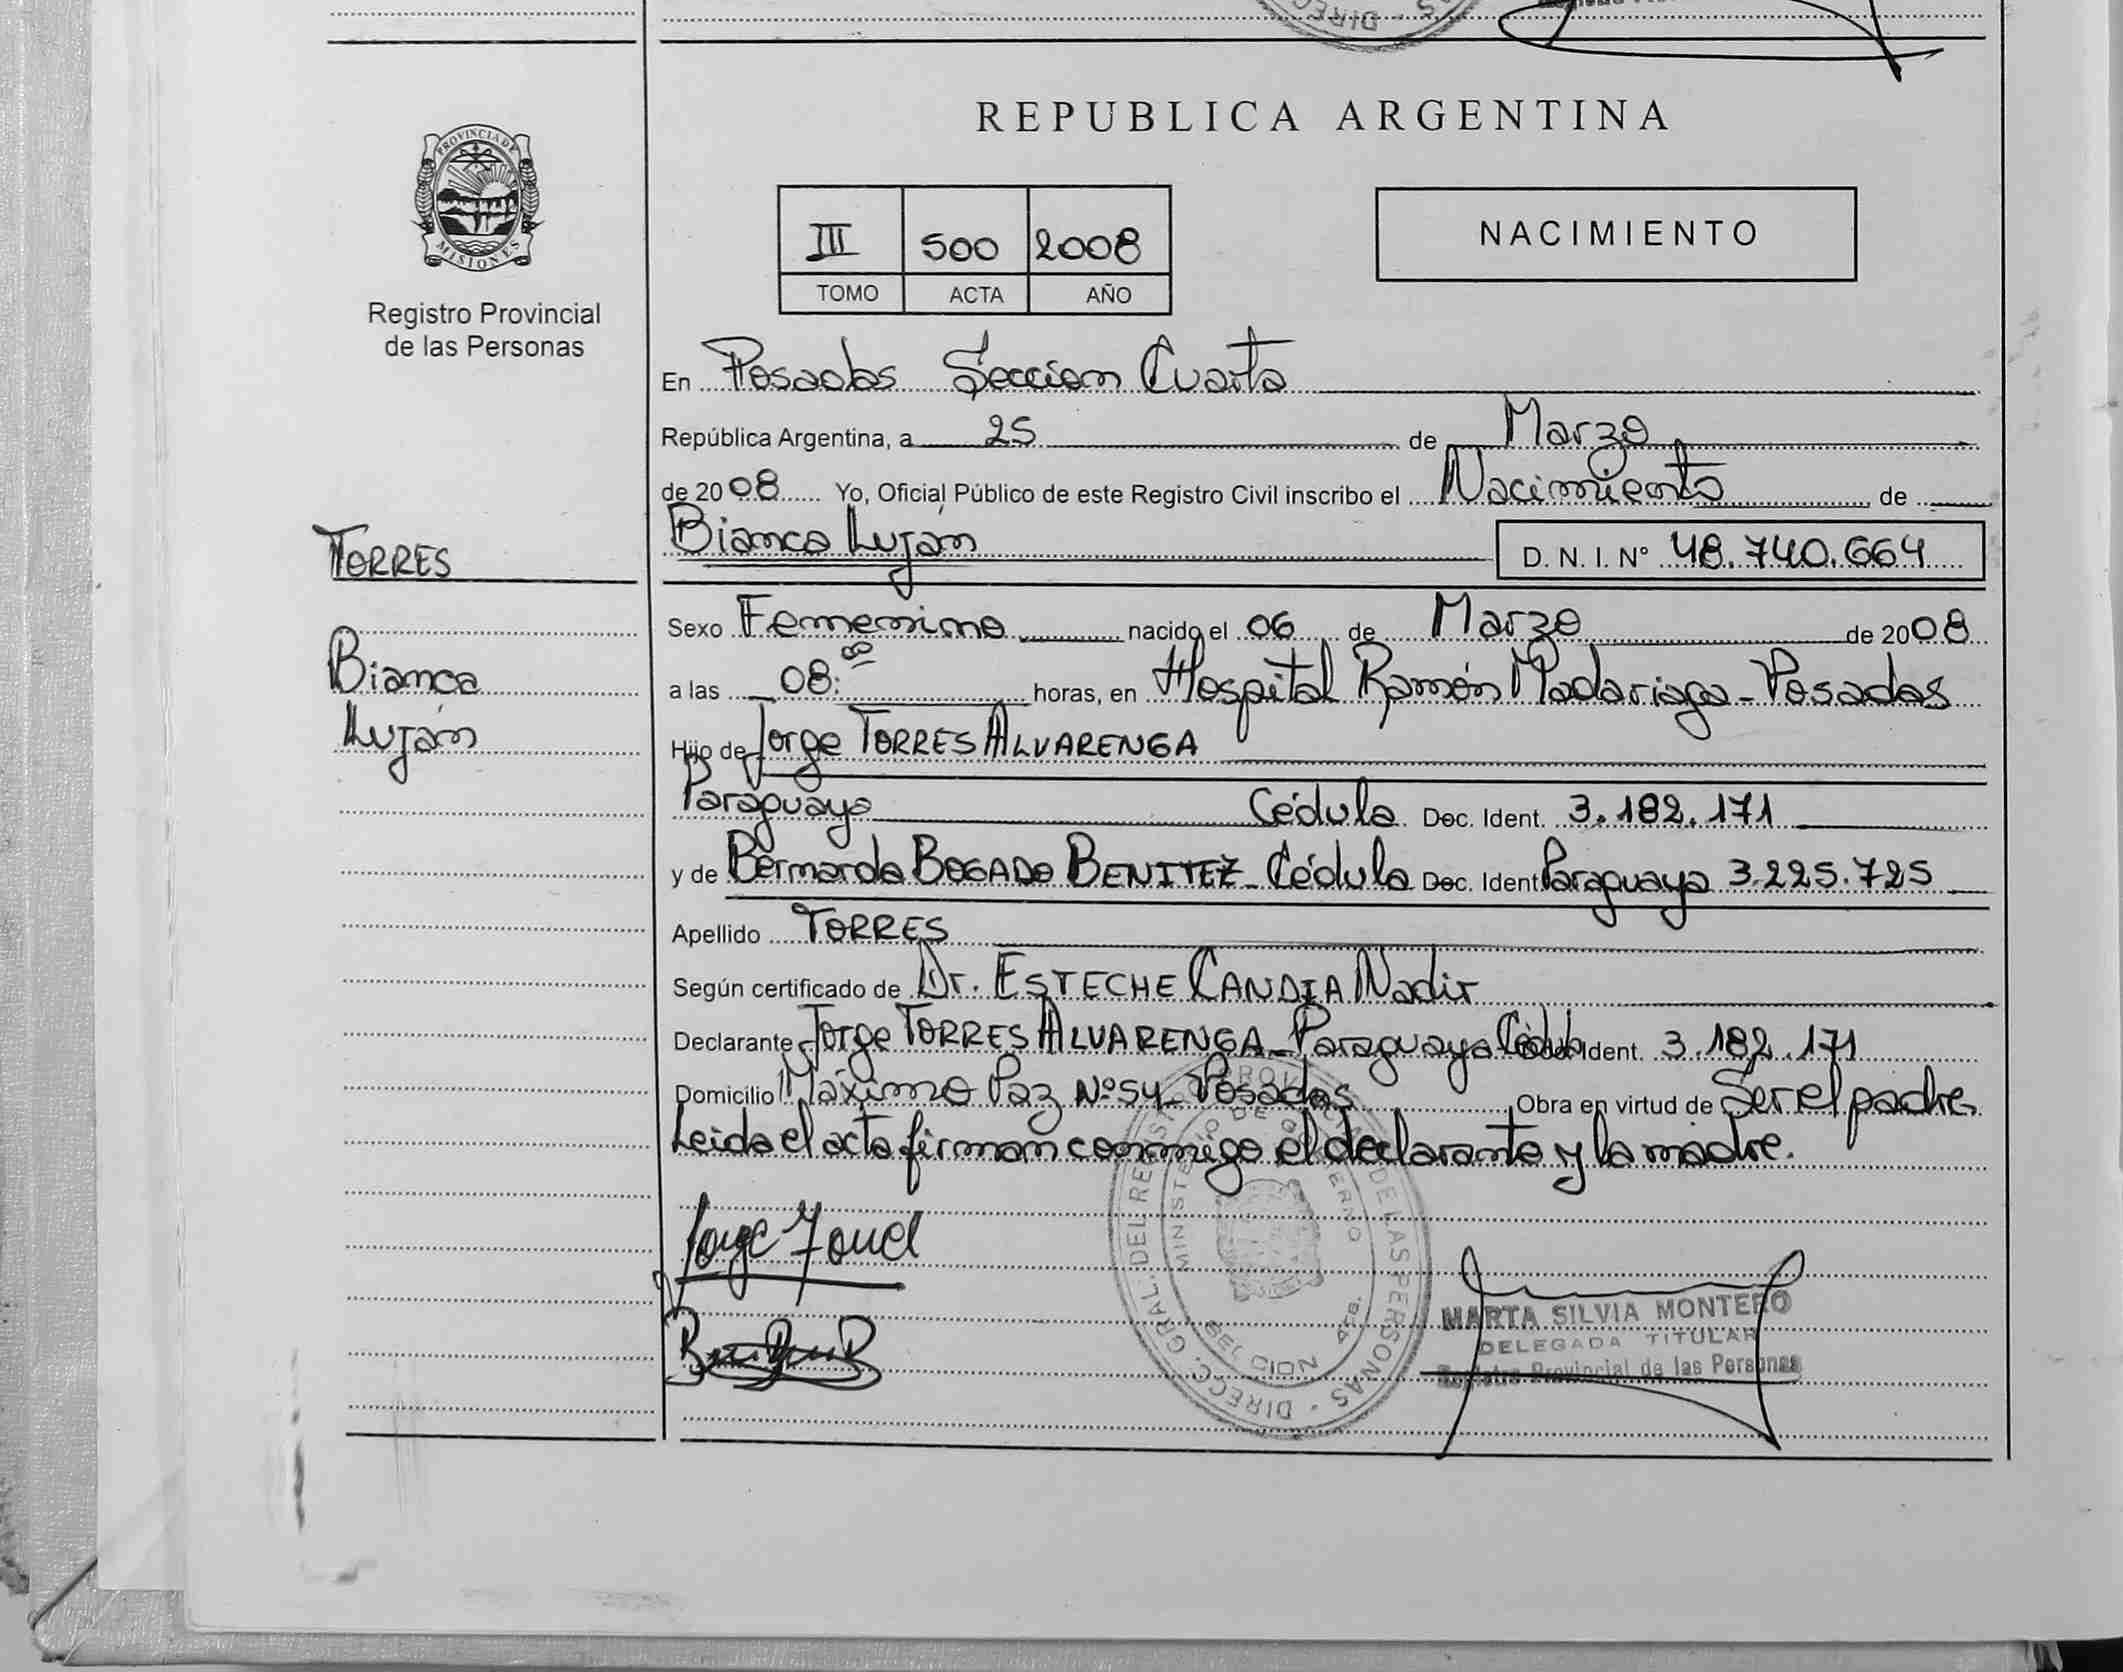 REPUBLICA ARGENTINA
PROVINCIA DE
MISIONES
Registro Provincial
de las Personas
III 500 2008
TOMO ACTA AÑO
NACIMIENTO
En Posadas Seccion Cuarta
República Argentina, a 25 de Marzo
de 2008 Yo, Oficial Público de este Registro Civil inscribo el Nacimiento de
Bianca Luján
D. N. I. Nº 48.740.664
TORRES
Bianca
Luján
Sexo Femenino nacido el 06 de Marzo de 2008
a las 08:00 horas, en Hospital Ramón Madariaga - Posadas
Hijo de Jorge TORRES ALVARENGA
Paraguaya Cédula Doc. Ident. 3.182.171
y de Bernarda BOGADO BENITEZ - Cédula Doc. Ident. Paraguaya 3.225.725
Apellido TORRES
Según certificado de Dr. ESTECHE CANDIA Nadir
Declarante Jorge TORRES ALVARENGA - Paraguaya Cédula Doc. Ident. 3.182.171
Domicilio Máximo Paz Nº 54 - Posadas Obra en virtud de Ser el padre
Leida el acta firman conmigo el declarante y la madre.
Jorge
DIRECC. GRAL. DEL REGISTRO PROVINCIAL DE LAS PERSONAS
MINISTERIO DE GOBIERNO
MARTA SILVIA MONTERO
DELEGADA TITULAR
Registro Provincial de las Personas